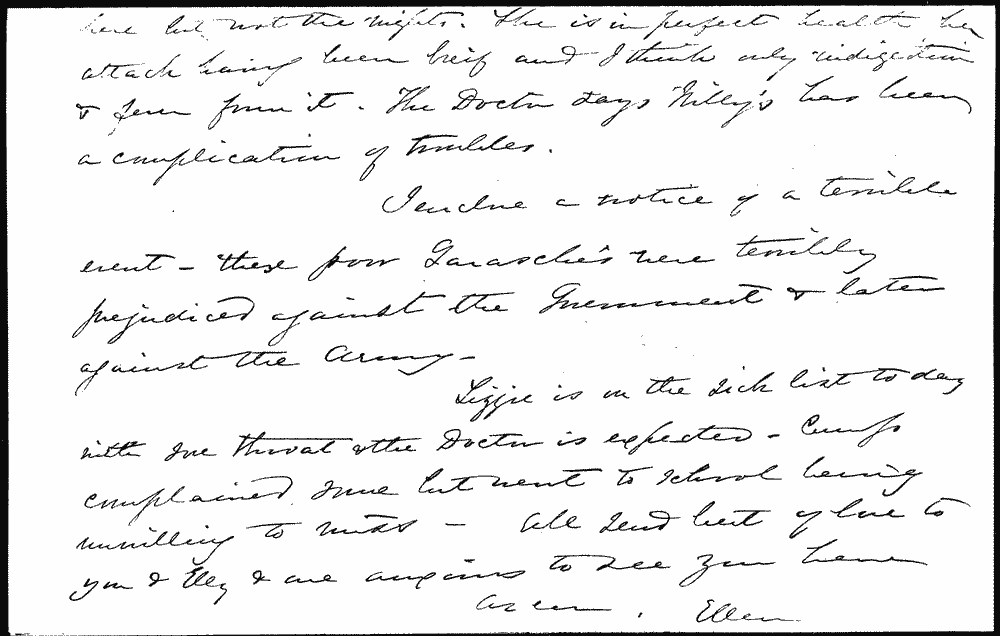 here but not the nights. She is in perfect health her
attack having been breif and I think only indigestion
& fever from it. The Doctor says Willy's has been
a complication of troubles.
I enclose a notice of a terrible
event – these poor Garasche's were terribly
prejudiced against the Government & later
against the Army –
Lizzie is on the sick list today
with sore throat & the Doctor is expected – Cump
complained some but went to school being
unwilling to miss – All send best of love to
you & Elly & are anxious to see you here
as ever. Ellen